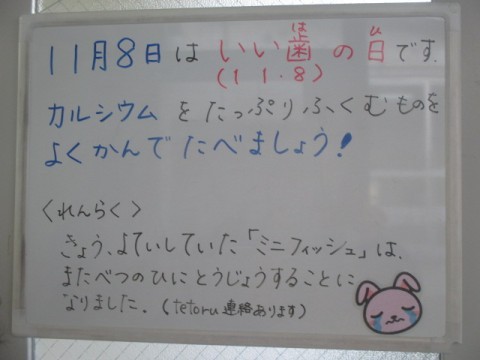 11月8日は いい歯の日です.
は ひ
(11.8)
カルシウムを たっぷりふくむものを
よくかんで たべましょう!
<れんらく>
きょう、よていしていた「ミニフィッシュ」は、
またべつのひに とうじょうすることに
なりました. (tetoru 連絡あります)